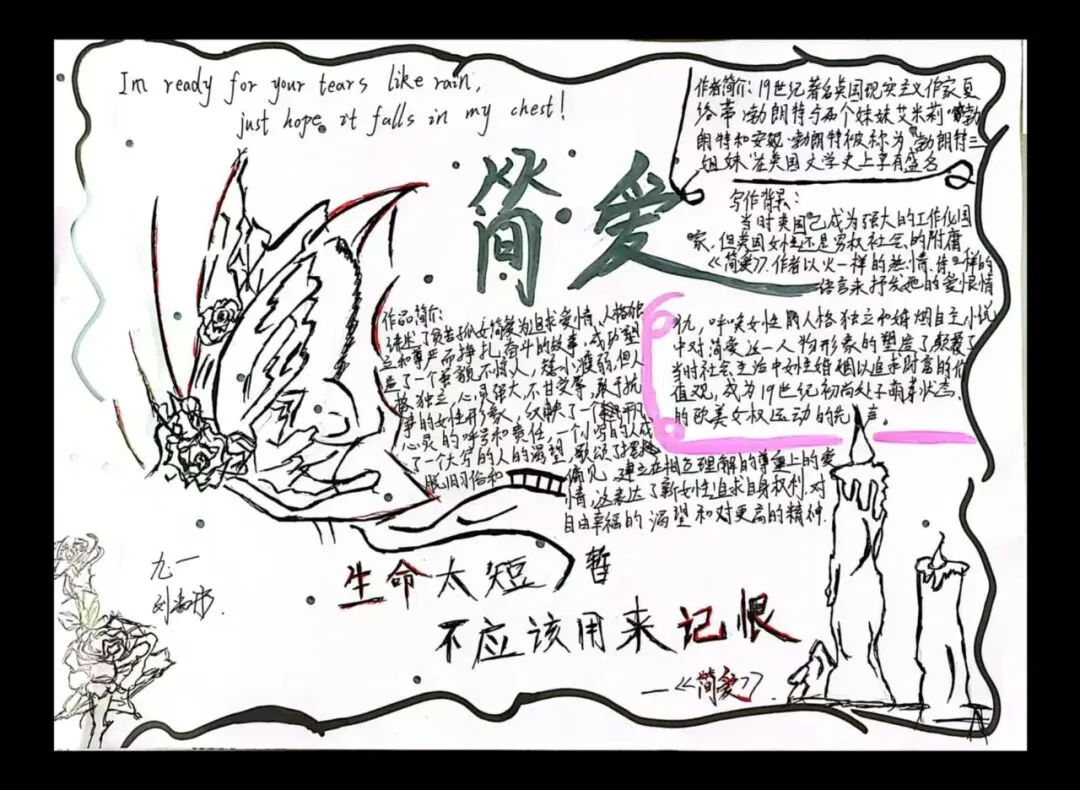 Im ready for your tears like rain,
just hope it falls in my chest!
简爱
作者简介:19世纪著名英国现实主义作家夏
洛蒂·勃朗特与两个妹妹艾米莉·勃
朗特和安妮·勃朗特被称为"勃朗特三
姐妹"在英国文学史上享有盛名
写作背景:
当时英国已成为强大的工作化国
家,但英国女性还是男权社会的附庸
《简爱》.作者以火一样的热情,诗一样的
语言来抒发她的爱恨情
仇,呼唤女性的人格独立和婚烟自主小说
中对简爱这一人物形象的塑造了颠覆了
当时社会生活中女性婚姻以追求财富的价
值观,成为19世纪初尚处于萌芽状态
的欧美女权运动的先声。
作品简介:
讲述了贫苦孤女简爱为追求爱情、人格独
立和尊严而挣扎奋斗的故事,成功塑
造了一个虽貌不惊人,矮小瘦弱,但人
格独立,心灵强大,不甘受辱,敢于抗
争的女性形象,反映了一个平凡
心灵的呼号和责任,一个小写的人成
了一个大写的人的渴望,歌颂了摆脱
脱旧习俗和偏见,建立在相互理解的尊重上的爱
情,这表达了新女性追求自身权利,对
自由幸福的渴望和对更高的精神.
九一
刘
生命太短暂
不应该用来记恨
—《简爱》